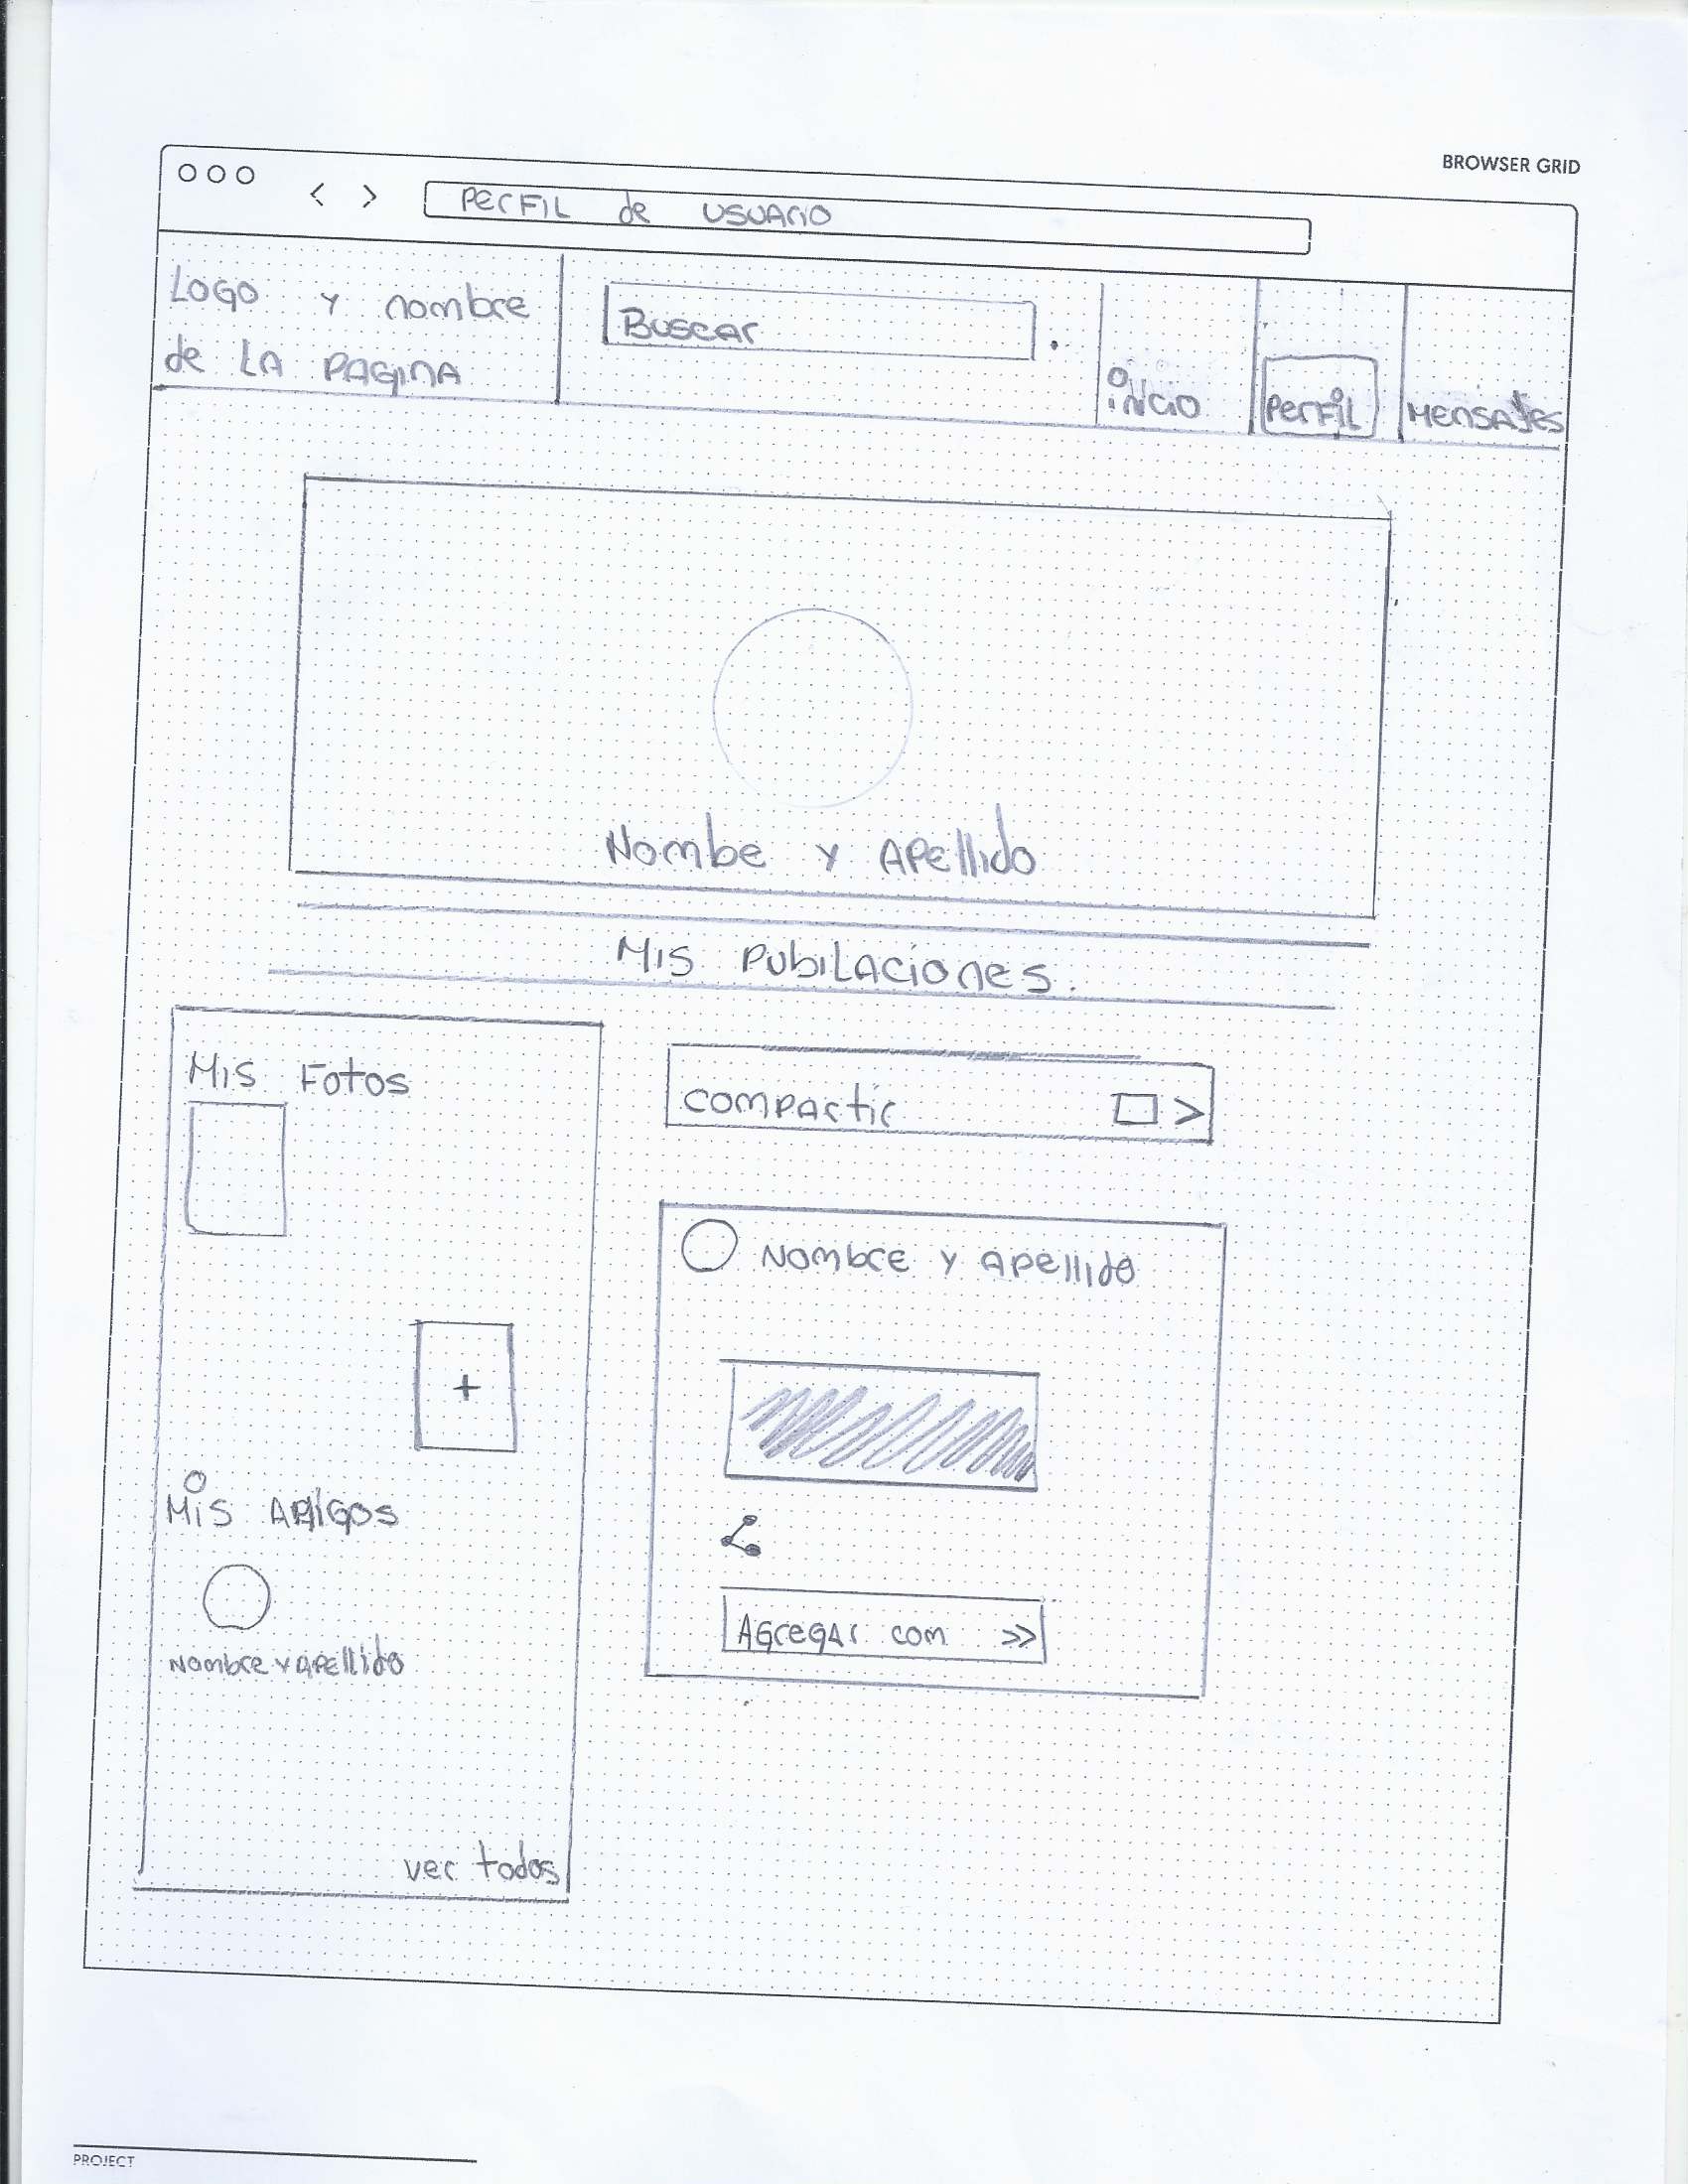 BROWSER GRID
< > PERFIL de USUARIO
LOGO y nombre
de LA PAGINA
BUSCAR
iNicio
PerFil
MENSAJes
Nombe y APellido
Mis PubiLAciones.
Mis Fotos
COMPARtir >
NOMbre y APellido
+
Mis AMiGOS
Nombre y APellido
AGregAr com >>
ver todos
PROJECT